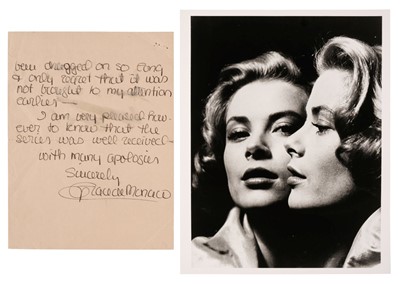 been dragged on so long
& only regret that it was
not brought to my attention
earlier —
I am very pleased how-
ever to know that the
series was well received -
with many apologies
Sincerely
Grace de Monaco